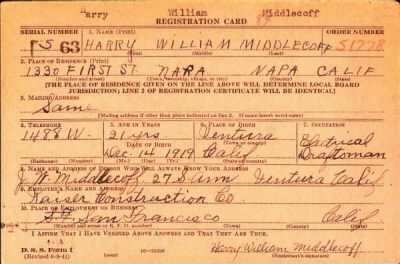 "arry William Middlecoff
REGISTRATION CARD
SERIAL NUMBER 1. NAME (Print)
S 63 HARRY WILLIAM MIDDLECOFF S1778
(First) (Middle) (Last)
2. PLACE OF RESIDENCE (Print)
1330 FIRST ST. NAPA NAPA CALIF
(THE PLACE OF RESIDENCE GIVEN ON THE LINE ABOVE WILL DETERMINE LOCAL BOARD
JURISDICTION; LINE 2 OF REGISTRATION CERTIFICATE WILL BE IDENTICAL)
3. MAILING ADDRESS
Same
4. TELEPHONE 5. AGE IN YEARS 6. PLACE OF BIRTH 7. OCCUPATION
1488 W. 21 yrs Ventura Electrical
DATE OF BIRTH
Dec 14 1919 Calif Draftsman
8. NAME AND ADDRESS OF PERSON WHO WILL ALWAYS KNOW YOUR ADDRESS
Middlecoff 27 S. Ventura Calif
9. EMPLOYER'S NAME AND ADDRESS
Kaiser Construction Co.
10. PLACE OF EMPLOYMENT OR BUSINESS
San Francisco Calif
I AFFIRM THAT I HAVE VERIFIED ABOVE ANSWERS AND THAT THEY ARE TRUE.
D. S. S. Form 1
(Revised 6-9-41) Harry William Middlecoff
(Registrant's signature)